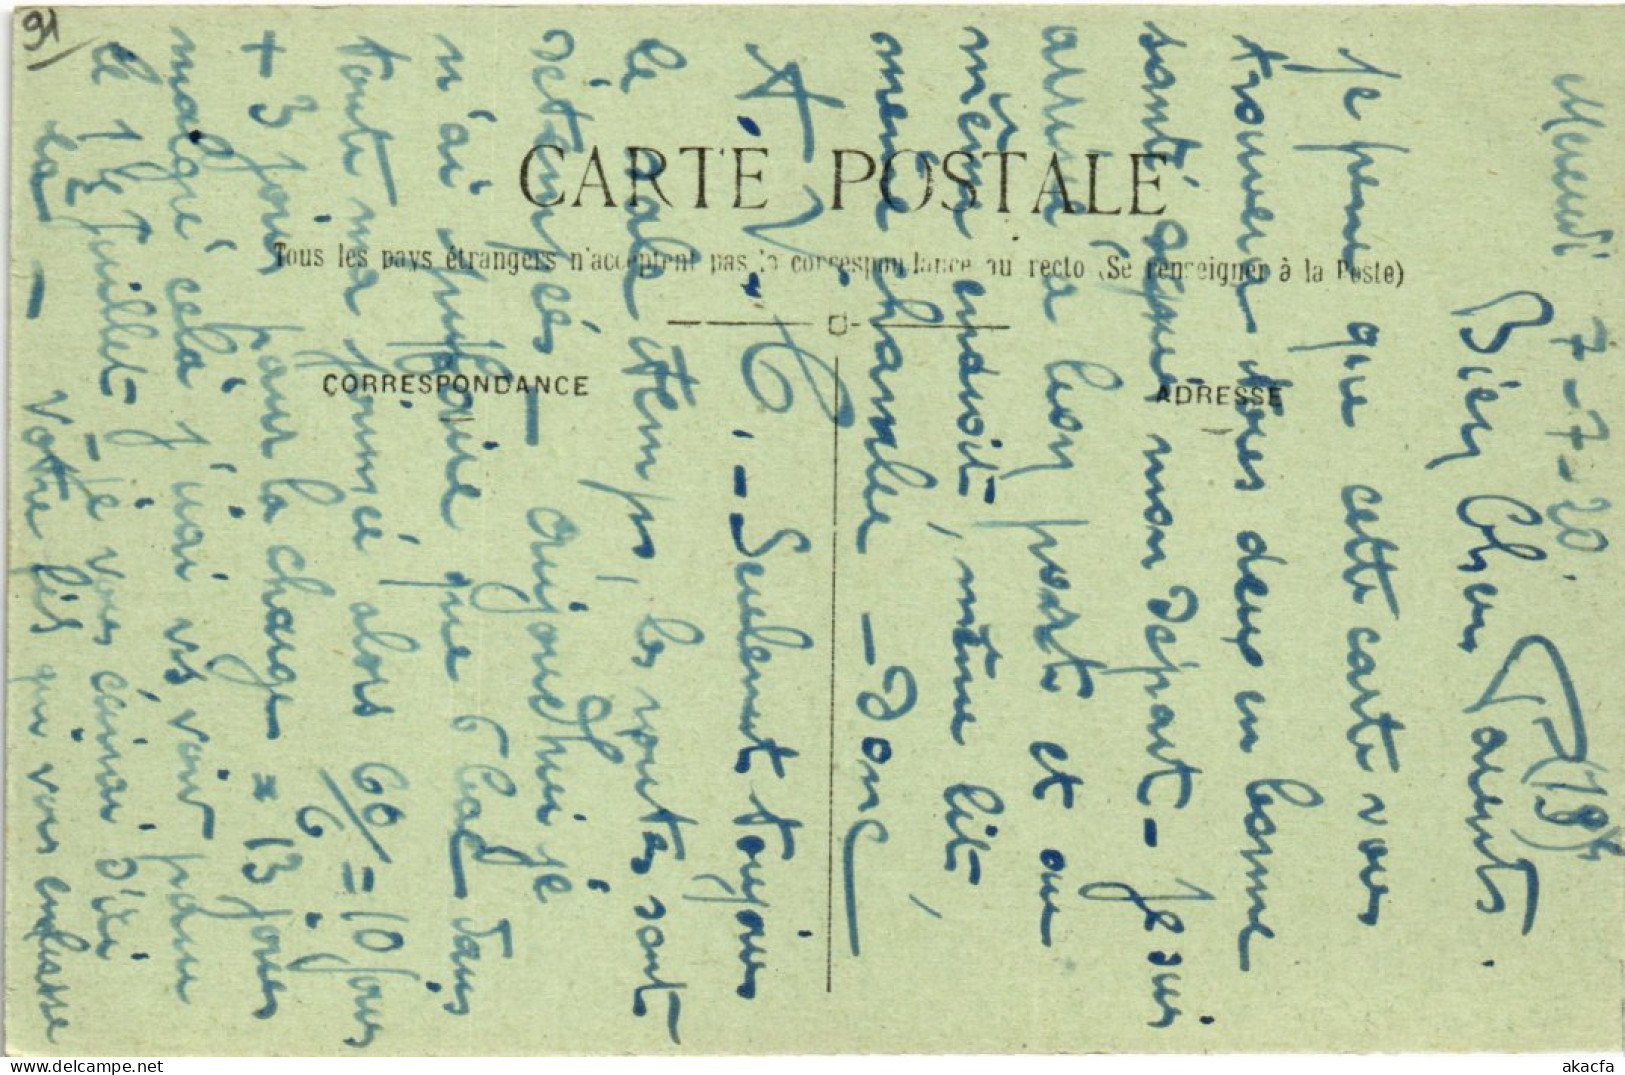 91
CARTE POSTALE
Tous les pays étrangers n'acceptent pas la correspondance au recto (Se renseigner à la Poste)
CORRESPONDANCE
ADRESSE
7-7-20
Bien Chers Parents.
Je pense que cette carte vous
trouvera tous deux en bonne
santé depuis mon départ - Je suis
arrivé à bon port et au
même endroit, même lit,
même chambre - Donc
A. V. C. - Seulement toujours
le sale temps, les routes sont
détrempées - Aujourd'hui je
n'ai pu faire que 6 dans
toute ma journée alors 60/6 = 10 jours
+ 3 jours pour la charge = 13 jours
malgré cela j'irai vs voir pour
le 14 Juillet - je vous écrirai d'ici
là - Votre fils qui vous embrasse
akacfa